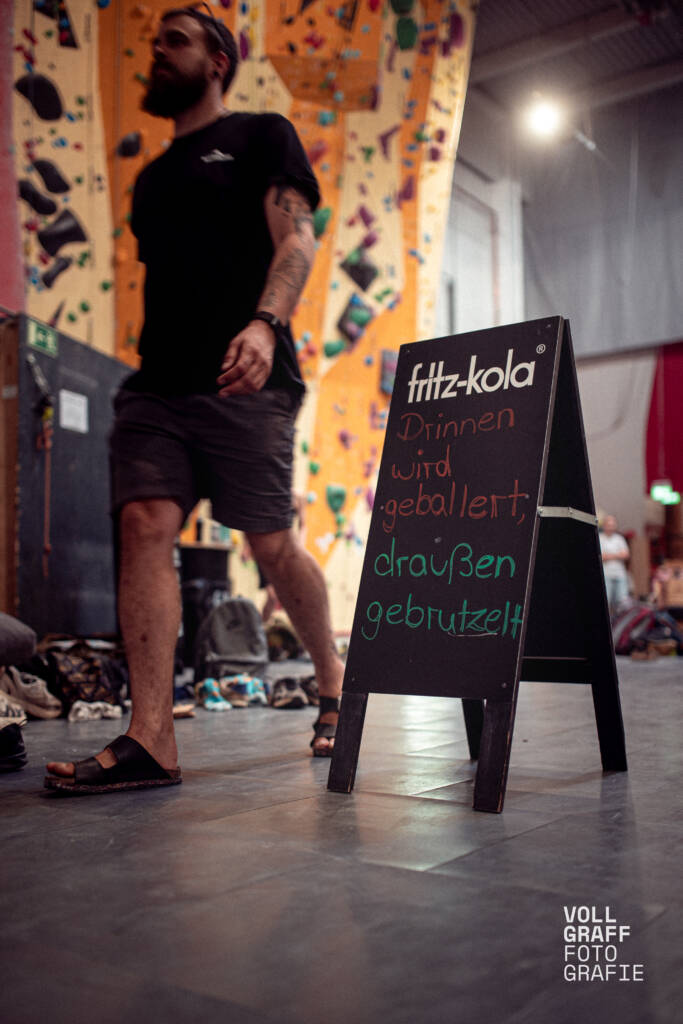 fritz-kola®
Drinnen
wird
geballert,
draußen
gebrutzelt
VOLL
GRAFF
FOTO
GRAFIE